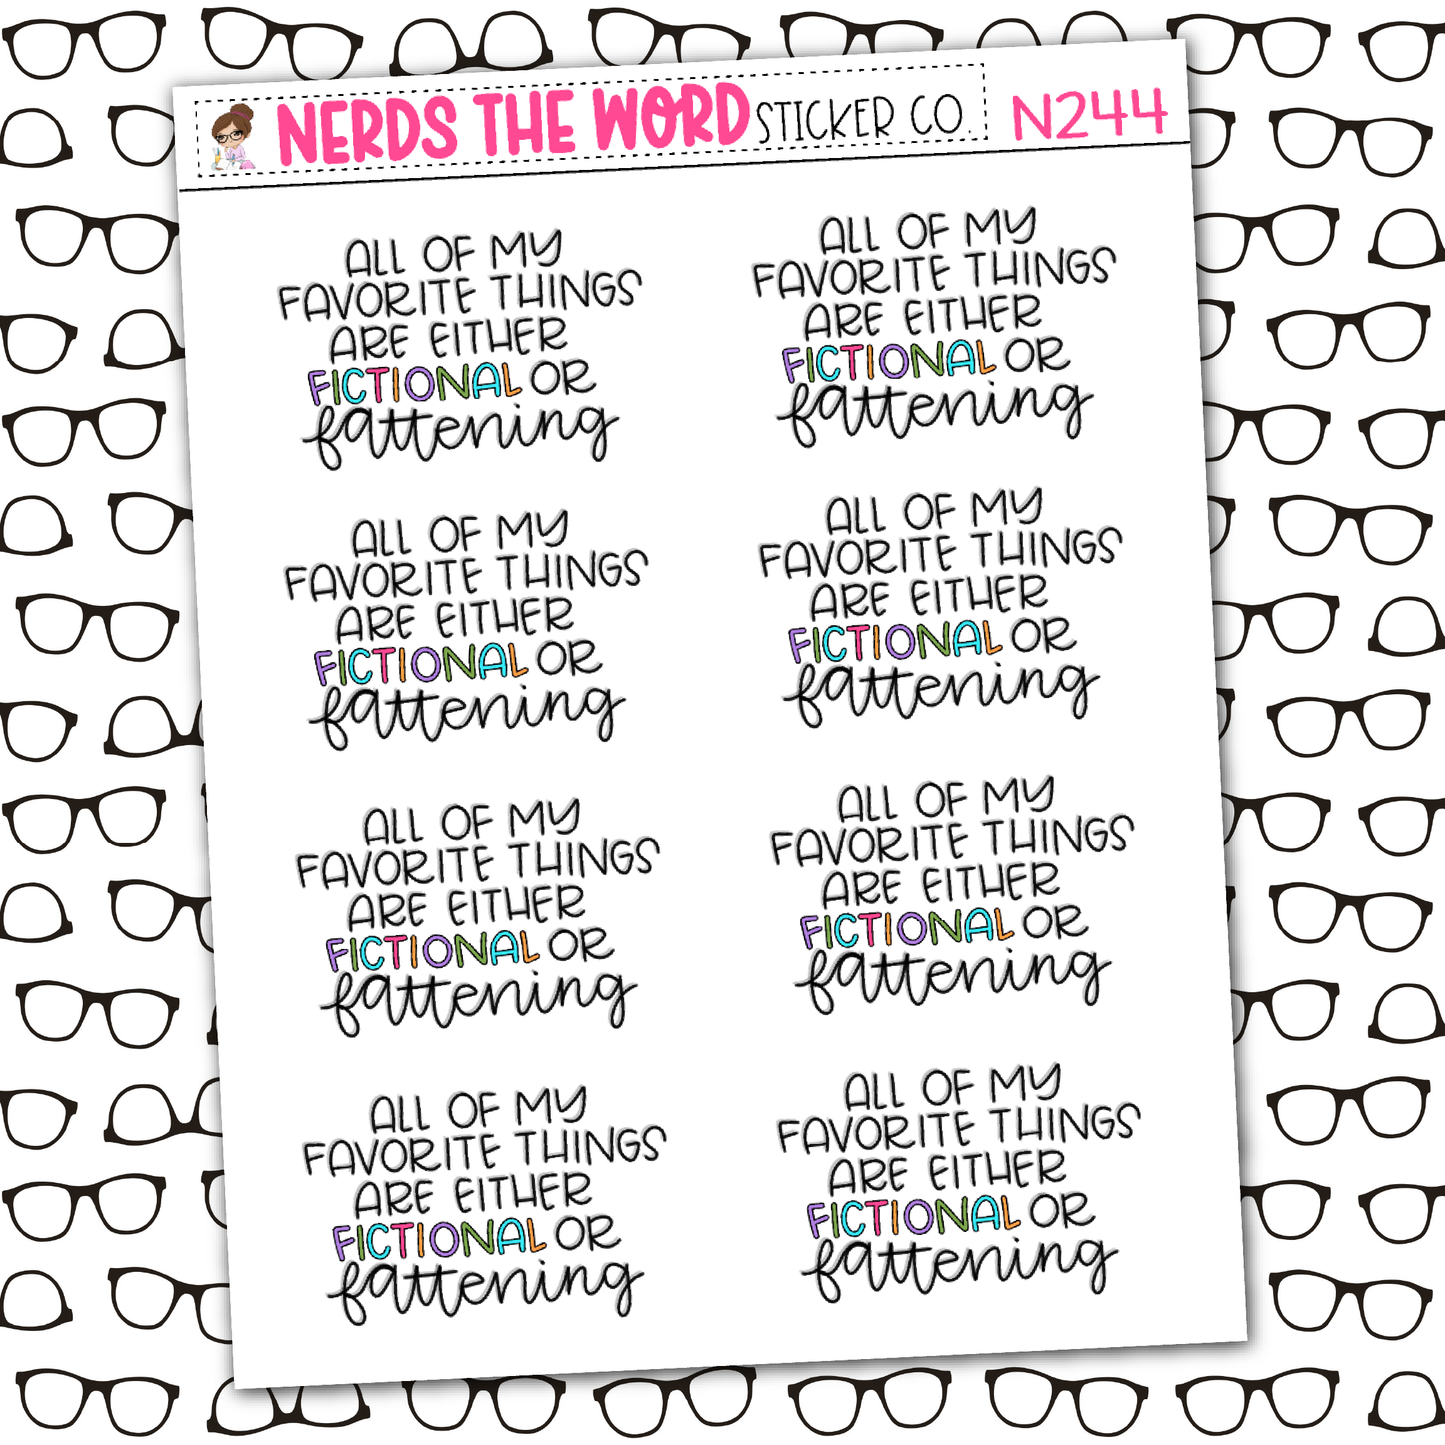 NERDS THE WORD STICKER CO. N244
ALL OF MY
FAVORITE THINGS
ARE EITHER
FICTIONAL OR
fattening
ALL OF MY
FAVORITE THINGS
ARE EITHER
FICTIONAL OR
fattening
ALL OF MY
FAVORITE THINGS
ARE EITHER
FICTIONAL OR
fattening
ALL OF MY
FAVORITE THINGS
ARE EITHER
FICTIONAL OR
fattening
ALL OF MY
FAVORITE THINGS
ARE EITHER
FICTIONAL OR
fattening
ALL OF MY
FAVORITE THINGS
ARE EITHER
FICTIONAL OR
fattening
ALL OF MY
FAVORITE THINGS
ARE EITHER
FICTIONAL OR
fattening
ALL OF MY
FAVORITE THINGS
ARE EITHER
FICTIONAL OR
fattening